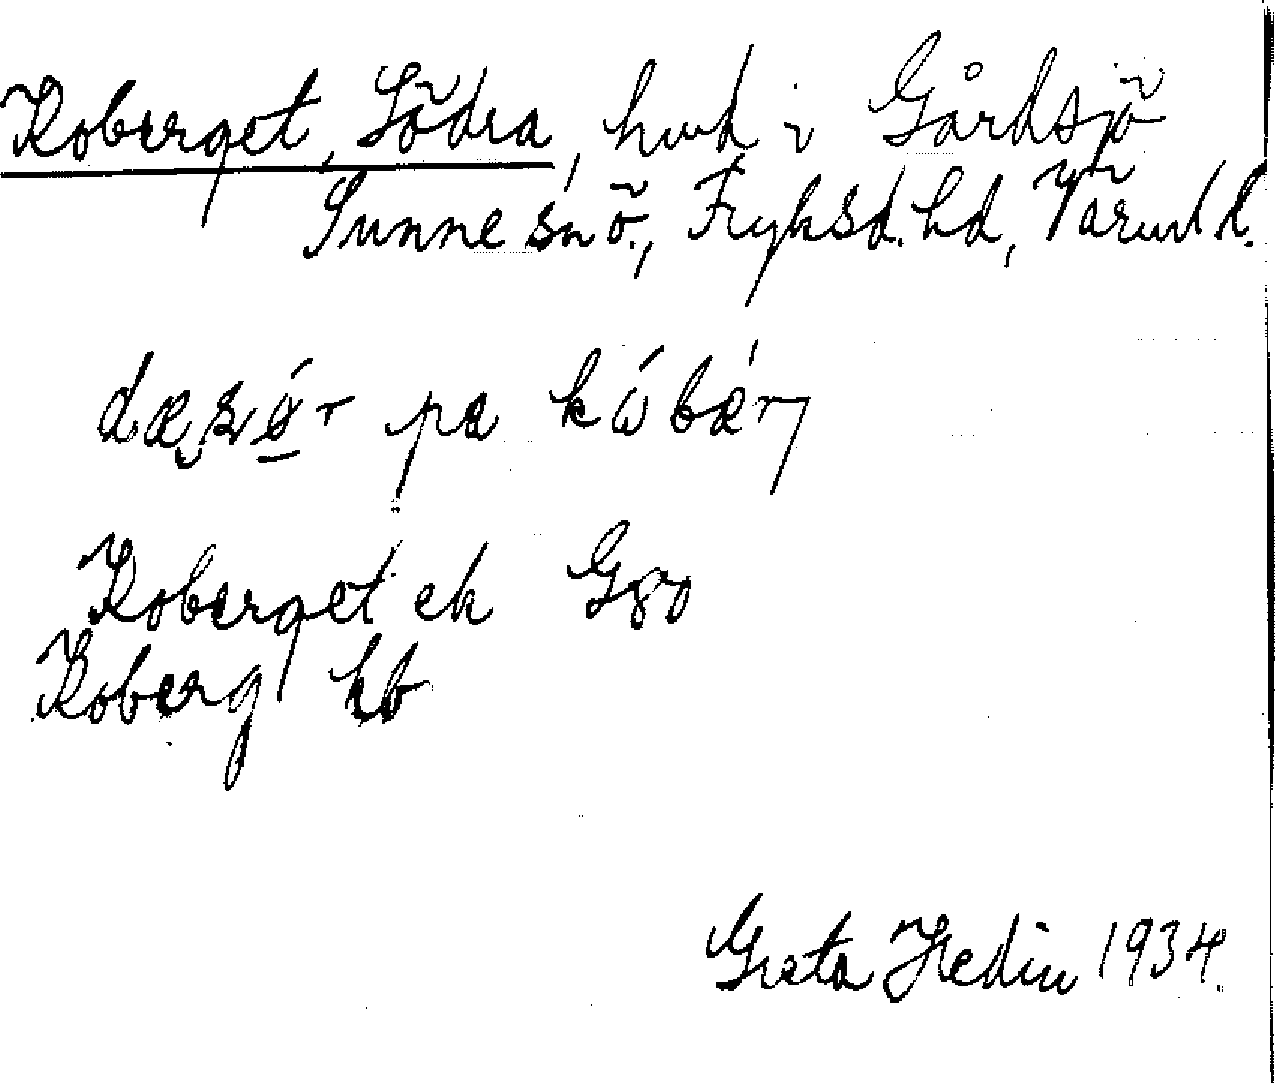 Koberget, Södra, hmd i Gårdsjö
Sunne sn ö., Fryksd. hd, Värml l.
pa kóbǽr
Koberget ek G80
Koberg kb
Greta Hedin 1934.